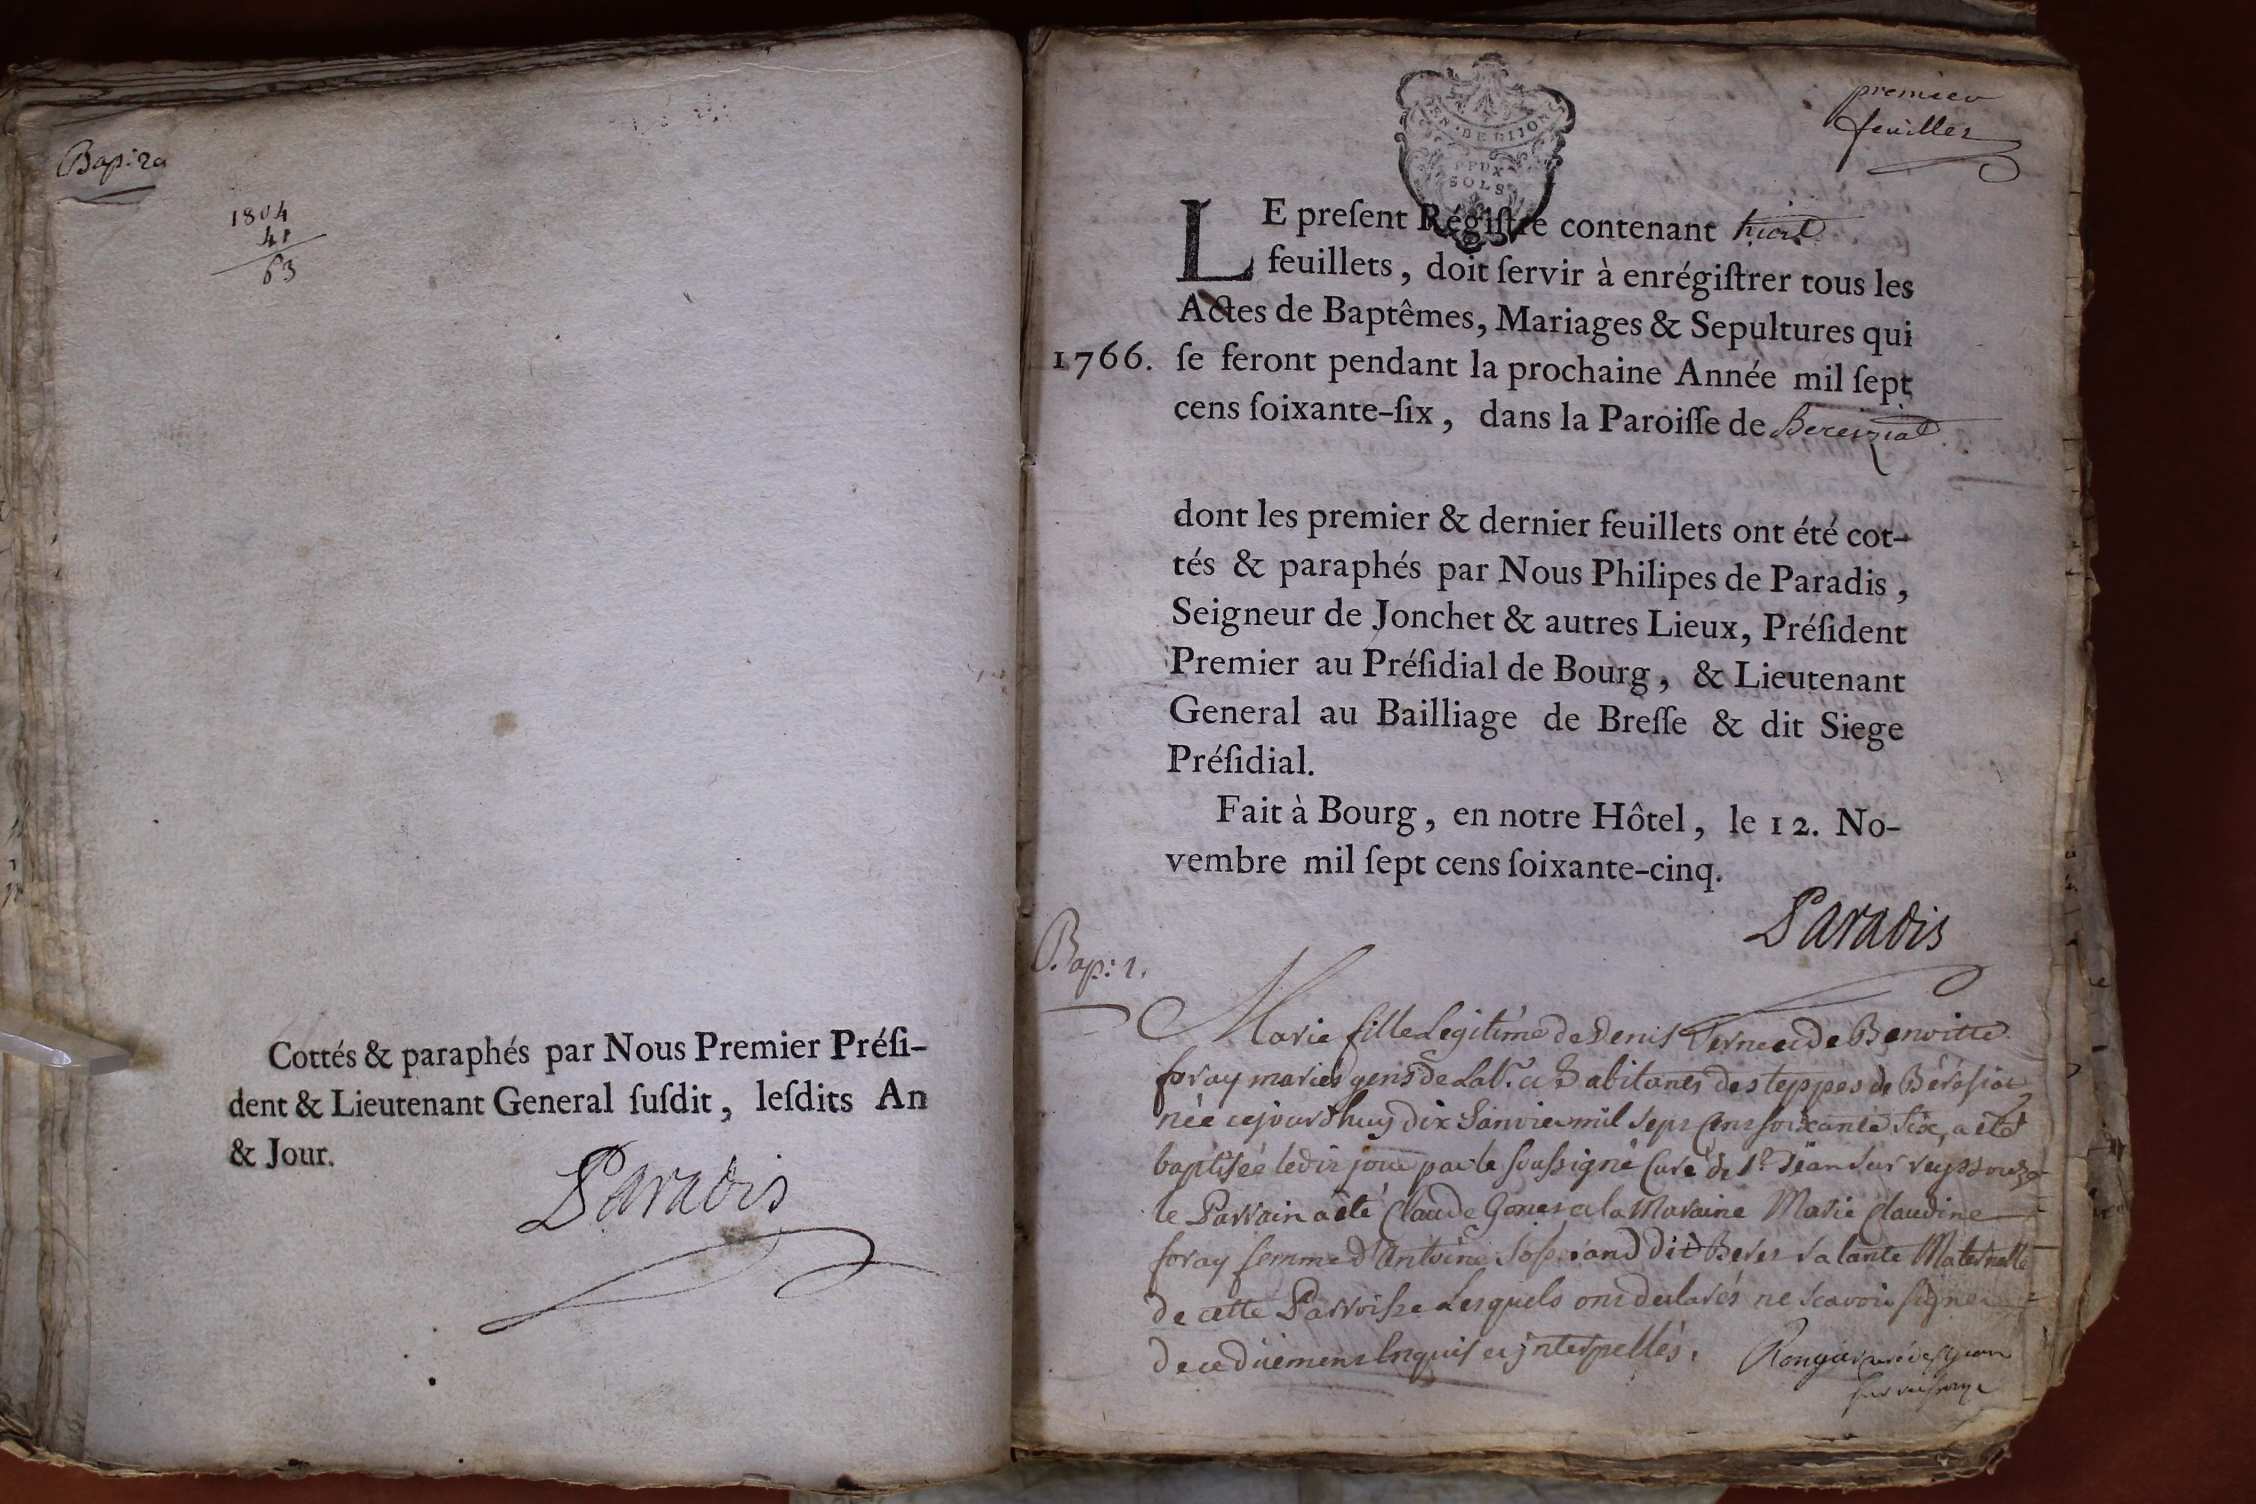 Bap: 2a
1804
41
63
Cottés & paraphés par Nous Premier Préſi-
dent & Lieutenant General ſuſdit, leſdits An
& Jour.
Paradis
premier
feuillet
EN. DE DIJON
DEUX
SOLS
LE preſent Régiſtre contenant huit
feuillets, doit ſervir à enrégiſtrer tous les
Actes de Baptêmes, Mariages & Sepultures qui
1766. ſe feront pendant la prochaine Année mil ſept
cens ſoixante-ſix, dans la Paroiſſe de Bereiziat
dont les premier & dernier feuillets ont été cot-
tés & paraphés par Nous Philipes de Paradis,
Seigneur de Jonchet & autres Lieux, Préſident
Premier au Préſidial de Bourg, & Lieutenant
General au Bailliage de Breſſe & dit Siege
Préſidial.
Fait à Bourg, en notre Hôtel, le 12. No-
vembre mil ſept cens ſoixante-cinq.
Paradis
Bap: 1.
Marie fille Legitime de Denis et de Benoitte
foray mariés gens de Lab.r et habitants des teppes de Béresiat
née cejourdhuy dix Janvier mil sept cens soixante six, a été
baptisée ledit jour par le soussigné Curé de St Jean sur reyssouze
le Parrain a été Claude et la Maraine Marie Claudine
foray femme d'Antoine dit sa tante Maternelle
de cette Parroisse Lesquels ont declarés ne scavoir signer
de ce düement Enquis et jnterpellés. curé de st jean
sur reissouze